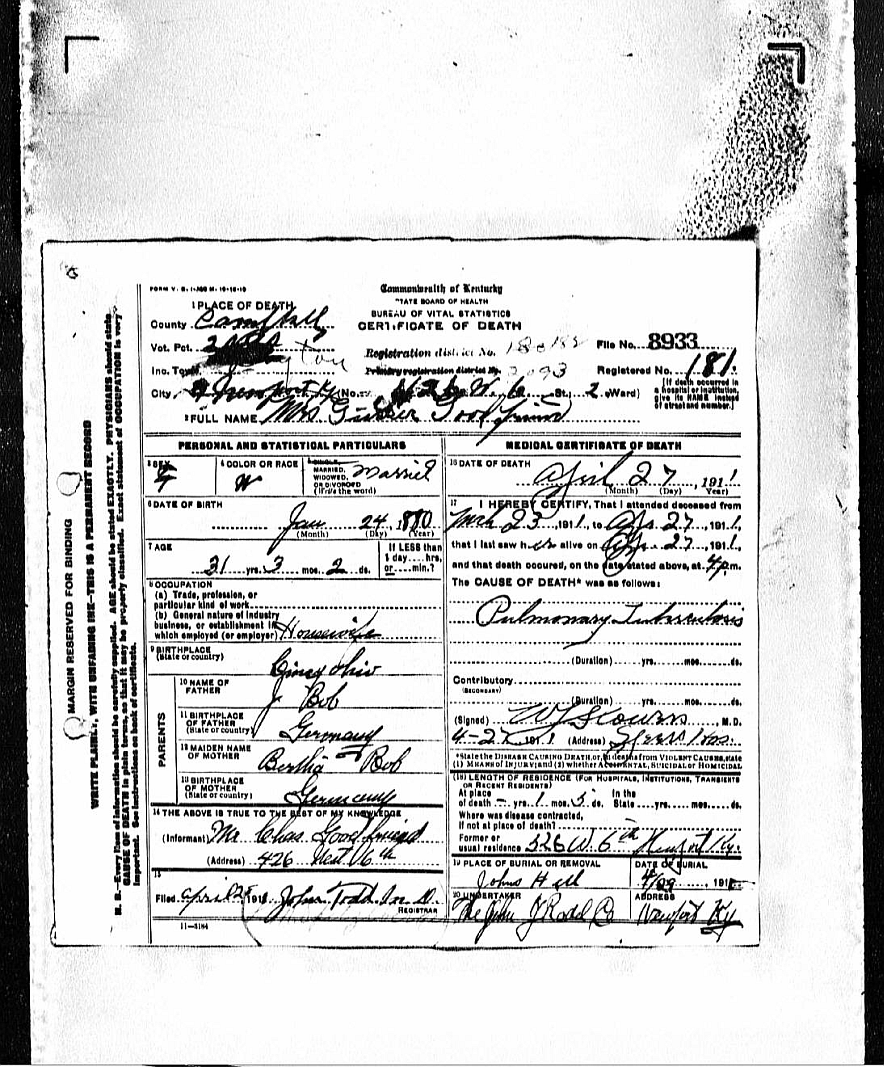 Commonwealth of Kentucky
STATE BOARD OF HEALTH
BUREAU OF VITAL STATISTICS
CERTIFICATE OF DEATH
1 PLACE OF DEATH
County Campbell
Vot. Pct.
Inc. Town
City Newport Ky No. W. 6 St., 2 Ward)
Registration district No.
Primary registration district No.
File No. 8933
Registered No. 181.
[If death occurred in a hospital or institution, give its NAME instead of street and number.]
2 FULL NAME Mrs
PERSONAL AND STATISTICAL PARTICULARS
3 SEX F
4 COLOR OR RACE W
5 SINGLE, MARRIED, WIDOWED, OR DIVORCED (Write the word) Married
6 DATE OF BIRTH
Jan 24, 1880
(Month) (Day) (Year)
7 AGE
31 yrs. 3 mos. 2 ds.
If LESS than 1 day....hrs, or.....min.?
8 OCCUPATION
(a) Trade, profession, or particular kind of work
(b) General nature of industry business, or establishment in which employed (or employer) Housewife
9 BIRTHPLACE
(State or country) Cincy Ohio
PARENTS
10 NAME OF FATHER J Bob
11 BIRTHPLACE OF FATHER (State or country) Germany
12 MAIDEN NAME OF MOTHER Bertha Bob
13 BIRTHPLACE OF MOTHER (State or country) Germany
14 THE ABOVE IS TRUE TO THE BEST OF MY KNOWLEDGE
(Informant) Mr Chas
(Address) 426 West 6th
15
Filed April 191 John Todd M. D.
REGISTRAR
11-3184
MEDICAL CERTIFICATE OF DEATH
16 DATE OF DEATH
April 27, 1911
(Month) (Day) Year)
17 I HEREBY CERTIFY, That I attended deceased from
Mch 23, 1911, to Apr 27, 1911,
that I last saw her alive on Apr 27, 1911,
and that death occured, on the date stated above, at 4 p.m.
The CAUSE OF DEATH* was as follows:
Pulmonary Tuberculosis
(Duration) yrs. mos. ds.
Contributory
(SECONDARY)
(Duration) yrs. mos. ds.
(Signed) M.D.
4-27 1911 (Address) Speers Hos.
*State the DISEASE CAUSING DEATH, or, in deaths from VIOLENT CAUSES, state (1) MEANS OF INJURY and (2) whether ACCIDENTAL, SUICIDAL or HOMICIDAL
(18) LENGTH OF RESIDENCE (FOR HOSPITALS, INSTITUTIONS, TRANSIENTS OR RECENT RESIDENTS)
At place of death - yrs. 1 mos. 5 ds. In the State yrs. mos. ds.
Where was disease contracted, if not at place of death?
Former or usual residence 526 W. 6th Newport Ky.
19 PLACE OF BURIAL OR REMOVAL
Johns Hill
DATE OF BURIAL
4/29 191
20 UNDERTAKER
ADDRESS
Newport Ky
MARGIN RESERVED FOR BINDING
WRITE PLAINLY, WITH UNFADING INK—THIS IS A PERMANENT RECORD
N. B.—Every item of information should be carefully supplied. AGE should be stated EXACTLY. PHYSICIANS should state
CAUSE OF DEATH in plain terms, so that it may be properly classified. Exact statement of OCCUPATION is very
important. See instructions on back of certificate.